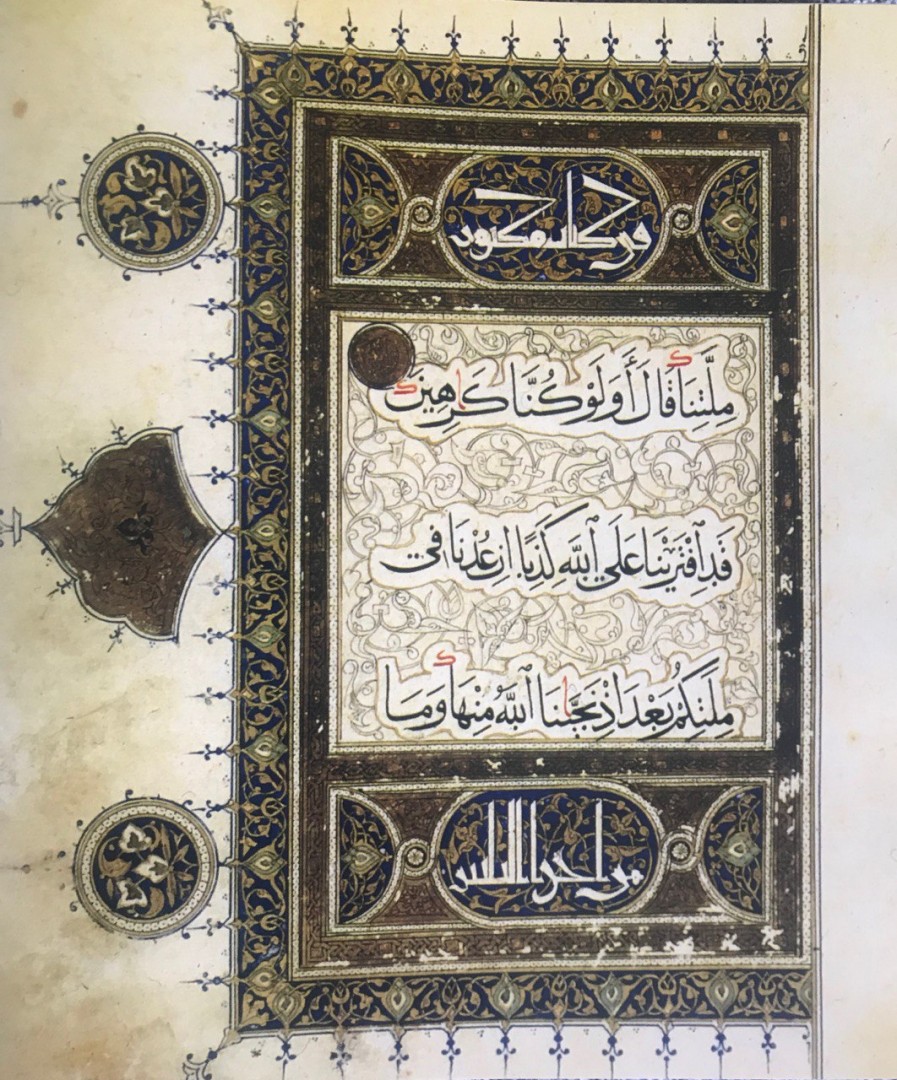 في كتاب مكنون
مِلَّتِنَا قَالَ أَوَلَوْ كُنَّا كَٰرِهِينَ
قَدِ ٱفْتَرَيْنَا عَلَى ٱللَّهِ كَذِبًا إِنْ عُدْنَا فِي
مِلَّتِكُمْ بَعْدَ إِذْ نَجَّىٰنَا ٱللَّهُ مِنْهَا وَمَا
من اجزا الثلثين